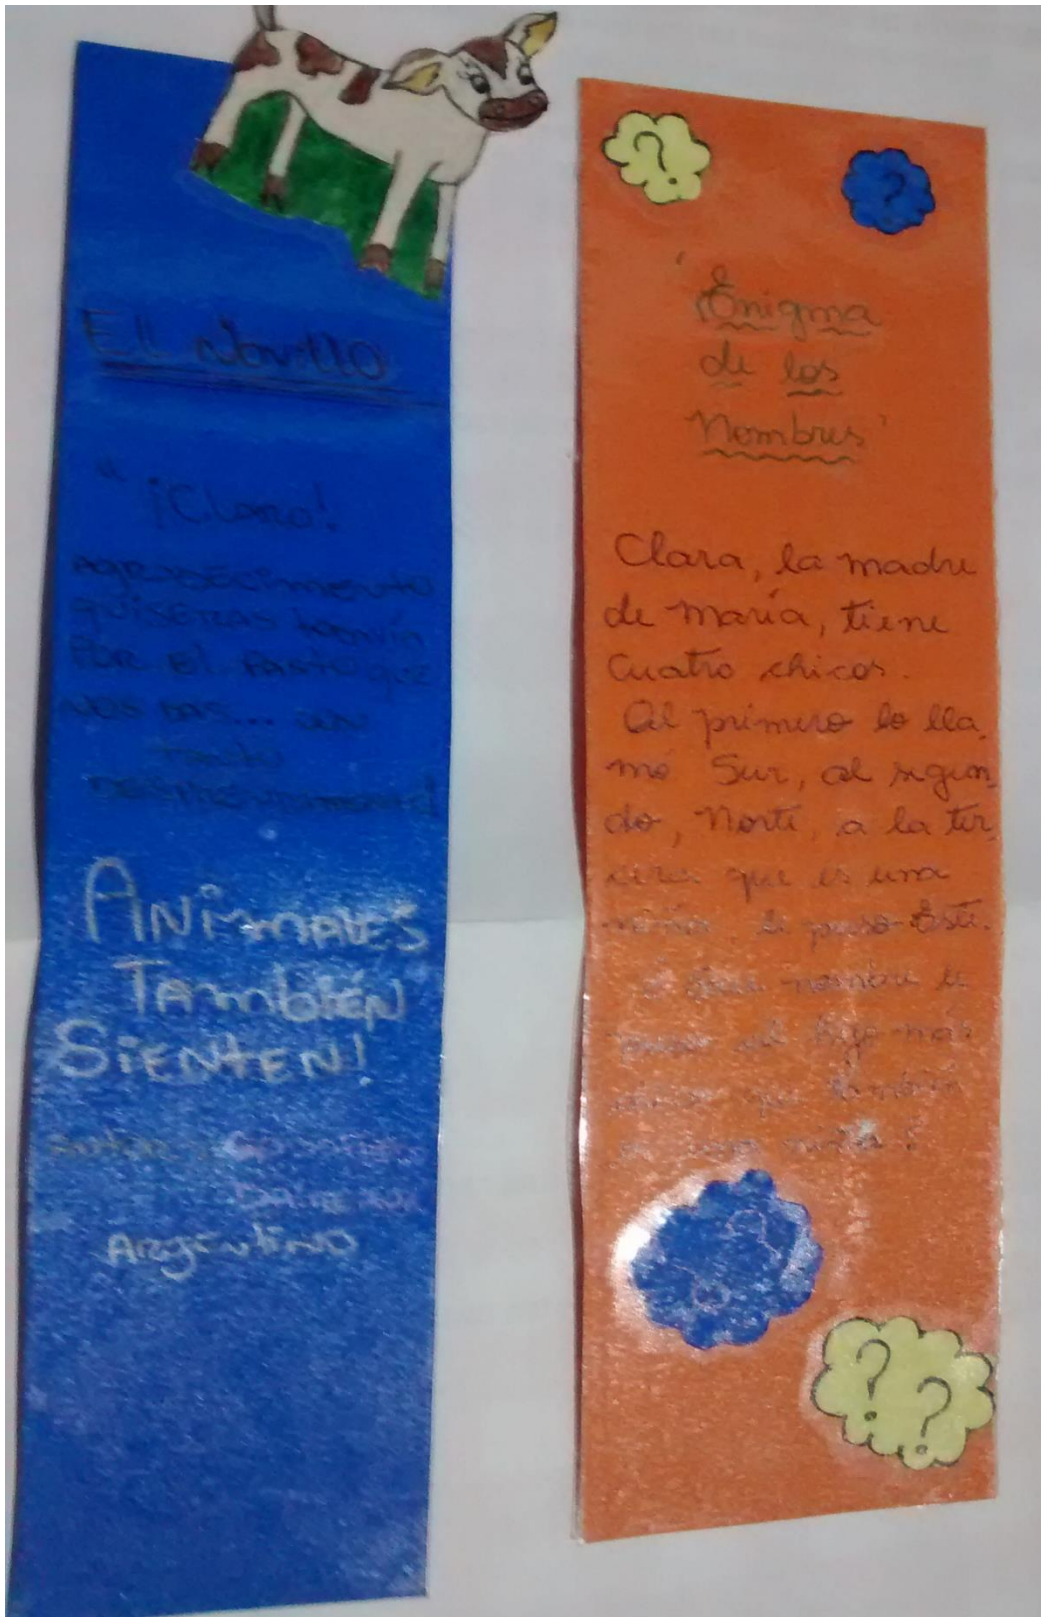 El Novillo
" ¡Claro!
Agradecimiento
quisieras todavía
por el pasto que
nos das... un
tanto
Animales
También
Sienten!
Autor:
Argentino
?
?
'¡Enigma
de los
Nombres'
Clara, la madre
de maría, tiene
cuatro chicos.
Al primero lo lla
mó Sur, al segun
do, Norte, a la ter
cera que es una
niña, le puso Este.
¿ Qué nombre le
puso al hijo más
chico que también
es una niña?
? ?